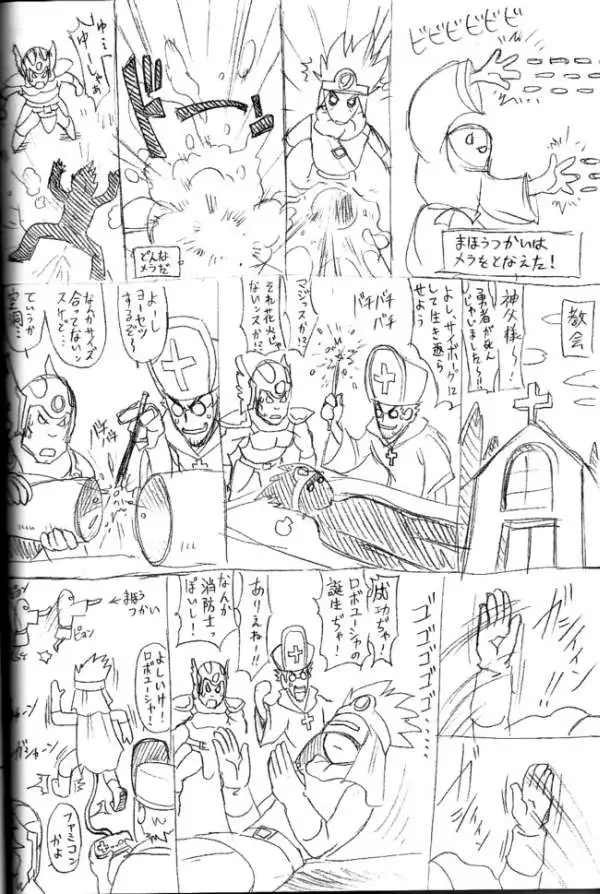 ビビビビビビ
まほうつかいは
メラをとなえた!
ドーン
どんな
メラだ
ゆ…
ゆーしゃぁ
教会
神父様〜!
勇者が死ん
じゃいました〜!!
よし、サイボーグに
して生き返ら
せよう
バチ
バチ
バチ
マジッスか!?
それ花火じゃ
ないンスか!?
よーし
ヨーセツ
するぞ〜
バチ
バチ
なんかサイズ
合ってない
スけど…
ていうか
空洞…
ゴゴゴゴゴ
成功ぢゃ!
ロボユーシャの
誕生ぢゃ!
ありえねー!!
なんか
消防士っ
ぽいし!
←まほう
つかい
ピュン
よしいけ!
ロボユーシャ!
ガシャーン
ファミコン
かよ